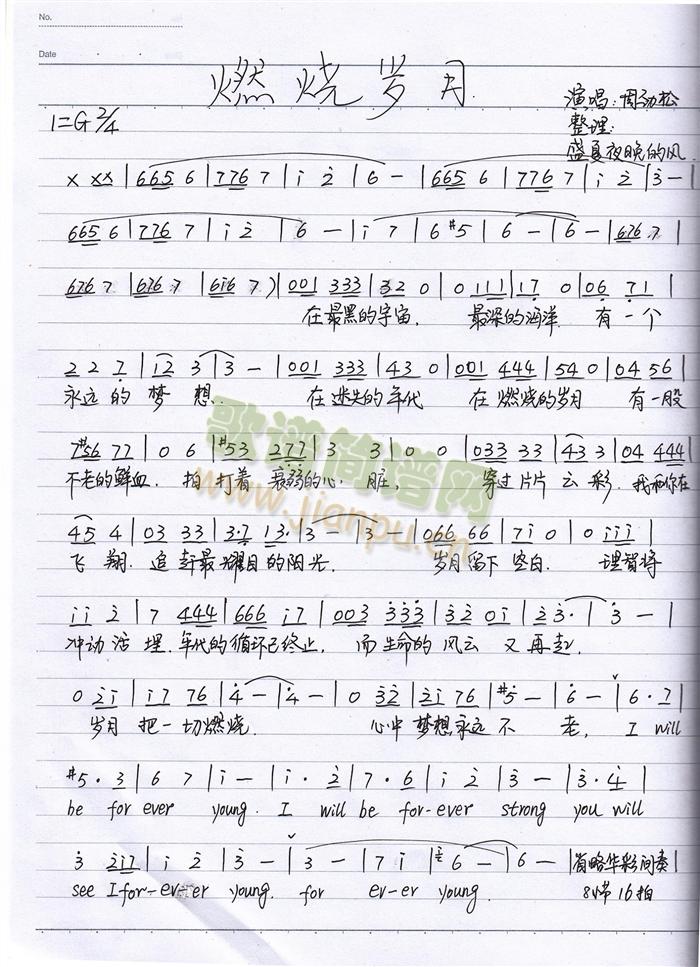 No.
Date
燃烧岁月
演唱:周劲松
1=G 2/4
整理:
盛夏夜晚的风
x xx | 665 6 | 776 7 | i 2 | 6 - | 665 6 | 776 7 | i 2 | 3 - |
665 6 | 776 7 | i 2 | 6 - | i 7 | 6 #5 | 6 - | 6 - | 676 7 |
676 7 | 676 7 | 6i6 7 ) | 001 333 | 32 0 | 0 111 | 17 0 | 06 71 |
在最黑的宇宙. 最深的海洋 有一个
2 2 7 | 12 3 | 3 - | 001 333 | 43 0 | 001 444 | 54 0 | 04 56 |
永远的梦想. 在迷失的年代 在燃烧的岁月 有一股
7#56 77 | 0 6 | #53 277 | 3 3 | 0 0 | 033 33 | 43 3 | 04 444 |
不老的鲜血. 拍打着衰弱的心脏, 穿过片片云彩. 我和你在
45 4 | 03 33 | 3·7 13· | 3 - | 3 - | 066 66 | 7i 0 | 0 iii |
飞翔. 追赶最耀目的阳光. 岁月留下空白. 理智将
ii 2 | 7 444 | 666 i7 | 003 333 | 32 0i | 23· | 3 - |
冲动活埋. 年代的循环已终止, 而生命的风云又再起.
0 2i | i7 76 | 4 - | 4 - | 0 32 | 2i 76 | #5 - | 6 - | 6 · 7 |
岁月把一切燃烧. 心中梦想永远不老, I will
#5 · 3 | 6 7 | i - | i · 2 | 7 · 6 | i 2 | 3 - | 3 · 4 |
be for ever young. I will be for-ever strong you will
3 2i7 | i 2 | 3 - | 3 - | 7 i | 6 - | 6 - | 省略华彩间奏
see I for-ev-er young. for ev-er young. 8小节16拍
歌谱简谱网
www.jianpu.cn